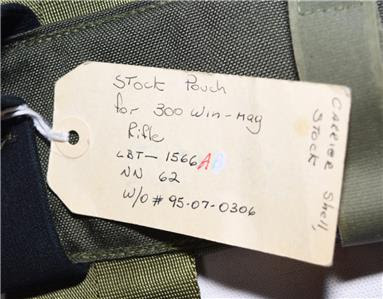 Stock Pouch
for 300 Win-Mag
Rifle
LBT- 1566AB
NN 62
W/O # 95-07-0306
CARRIER Shell,
Stock